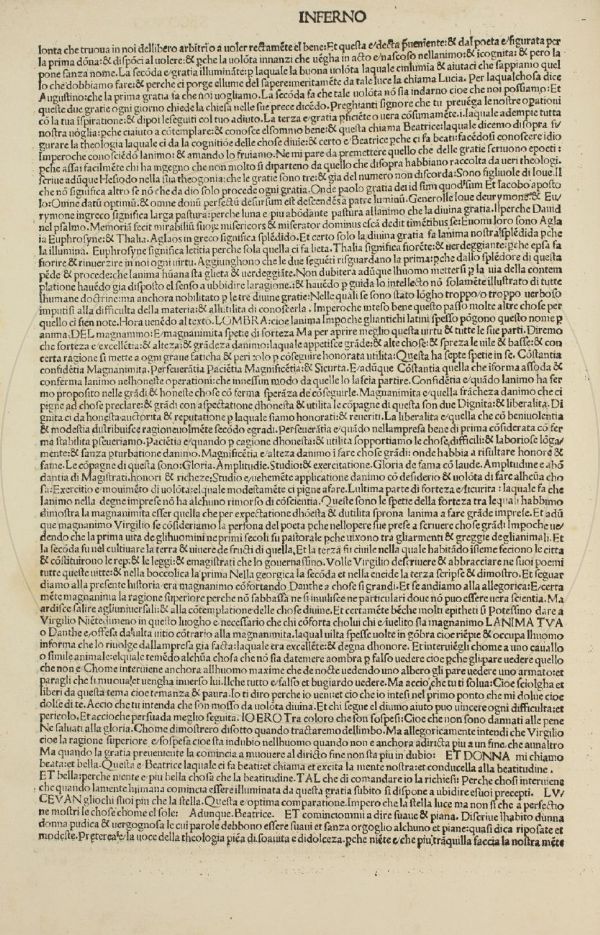 INFERNO
lonta che truoua in noi dellibero arbitrio a uoler rectamẽte el bene: Et questa e/decta p̃ueniente: & dal poeta e/figurata per
la prima dõna: & dispõci al uolere: & pche la uolõta innanzi che uegha in acto e/nascoso nellanimo: & icognita: & pero la
pone sanza nome. La secõda e/gratia illuminãte: p laquale la buona uolõta laquale e/ & aiutaci che sappiamo quel
lo che dobbiamo fare: & perche ci porge ellume del sapere meritamẽte da tale luce la chiama Lucia. Per laqual chosa dice
Augustino: che la prima gratia fa che noi uogliamo. La secõda fa che tale uolõta nõ sia indarno cioe che noi possiamo: Et
queste due gratie ogni giorno chiede la chiesa nelle sue prece dicẽdo. Preghianti signore che tu preuẽga le nostre opationi
cõ la tua ispiratione: & dipoi le seguiti col tuo adiuto. La terza e/gratia pficiẽte o uera cõsumãte: laquale adempie tutta
nostra uoglia: pche ciaiuto a cõtemplare: & conosce elsommo bene: & questa chiama Beatrice: laquale dicemo disopra fi/
gurare la theologia laquale ci da la cognitiõe delle chose diuie: & certo e/Beatrice pche ci fa beati: facẽdosi conoscere idio
Imperoche conosciẽdo lanimo: & amando lo fruiamo. Ne mi pare da premettere quello che delle gratie scriuono epoeti:
pche assai facilmẽte chi ha ingegno che non molto si diparteno da quello che disopra habbiano raccolta da ueri theologi.
scriue adũque Hesiodo nella sua theogonia: che le gratie sono tre: & gia del numero non discorda: Sono figliuole di Ioue. Il
che nõ significa altro se nõ che da dio solo procede ogni gratia. Onde paolo gratia dei id sum quod sum Et Iacobo aposto
lo: Omne datũ optimũ: & omne donũ perfectũ desursum est descendẽs a patre luminũ. Generolle Ioue deurymone: & Eu/
rymone ingreco significa larga pastura: perche luna e piu abõdante pastura allanimo che la diuina gratia. Il perche Dauid
nel psalmo. Memoriã fecit mirabiliũ suoꝝ misericors & miserator dominus escã dedit timẽtibus se: Enomi loro sono Agla
ia Euphrosyne: & Thalia. Aglaos in greco significa splẽdido. Et certo solo la diuina gratia fa lanima nostra splẽdida pche
la illumina. Euphrosyne significa letitia perche sola quella ci fa lieta. Thalia significa fiorẽte: & uerdeggiante: pche epsa fa
fiorire & rinuerzire in noi ogni uirtu. Aggiunghono che le due seguẽti risguardano la prima: pche dallo splẽdore di questa
pẽde & procede: che lanima hũana sta lieta & uerdeggiãte. Non dubitera adũque lhuomo mettersi p la uia della contem
platione hauẽdo gia disposto el senso a ubbidire laragione: & hauẽdo p guida lo intellecto nõ solamẽte illustrato di tutte
lhumane doctrine: ma anchora nobilitato p le tre diuine gratie: Nelle quali se sono stato lõgho troppo/o troppo uerboso
imputisi alla difficulta della materia: & allutilita di conoscerla. Imperoche inteso bene questo passo molte altre chose per
quello ci sien note. Hora uenẽdo al texto. LOMBRA: cioe lanima Impoche glantichi latini spesso põgono questo nome p
anima. DEL magnanimo: E/magnanimita spetie di forteza Ma per aprire meglio questa uirtu & tutte le sue parti. Diremo
che forteza e excellẽtia: & alteza: & grãdeza danimo: laquale appetisce grãde: & alte chose: & spreza le uile & basse: & con
certa ragione si mette a ogni graue faticha & peri solo p cõseguire honorata utilita: Questa ha septe spetie in se. Cõstantia
confidẽtia Magnanimita. Perseuerãtia Paciẽtia Magnificẽtia: & Sicurta. E/adũque Cõstantia quella che iforma assoda &
conferma lanimo nelhoneste operationi: che innessun modo da quelle lo lascia partire. Confidẽtia e/quãdo lanimo ha fer
mo proposito nelle grãdi & honeste chose cõ ferma sperãza de cõseguirle. Magnanimita e/quella frãcheza danimo che ci
pigne ad chose preclare: & grãdi con aspectatione dhonesta & utilita le cõpagne di questa son due Dignita: & liberalita. Di
gnita ci da honesta auctorita & reputatione p laquale siamo honorati: & reueriti. La liberalita e/quella che cõ beniuolentia
& modestia distribuisce ragioneuolmẽte secõdo egradi. Perseuerãtia e/quãdo nellampresa bene di prima cõsiderata cõ fer
ma stabilita pseueriamo. Paciẽtia e/quando p cagione dhonesta: & utilita sopportiamo le chose difficili: & laboriose lõga/
mente: & sanza pturbatione danimo. Magnificẽtia e/alteza danimo ĩ fare chose grãdi: onde habbia a risultare honore &
fame. Le cõpagne di questa sono: Gloria. Amplitudie. Studio: & exercitatione. Gloria de fama cõ laude. Amplitudine e abõ
dantia di Magistrati, honori & richeze; Studio e/uehemẽte applicatione danimo cõ desiderio & uolõta di fare alchũa cho
sa: Exercitio e mouimẽto di uolõta: el quale modestamẽte ci pigne afare. Lultima parte di forteza e/sicurta: laquale fa che
lanimo nella degne imprese nõ ha alchuno rimorso di cõscientia. Queste sono le spetie della forteza tra lequali habbimo
dimostra la magnanimita esser quella che per expectatione dhõesta & dutilita sprona lanimo a fare grãde imprese. Et adũ
que magnanimo Virgilio se cõsideriamo la persona del poeta pche nellopere sue prese a scriuere chose grãdi Impoche ue/
dendo che la prima uita de glihuomini ne primi secoli fu pastorale pche uixono tra gliarmenti & greggie deglianimali. Et
la secõda fu nel cultiuare la terra & uiuere de fructi di quella, Et la terza fu ciuile nella quale habitãdo isieme feciono le citta
& cõstituirono le rep: & le leggi: & emagistrati che lo gouernassino. Volle Virgilio descriuere & abbracciare ne suoi poemi
tutte queste uitte: & nella boccolica la prima Nella georgica la secõda et nella eneide la terza scripse & dimostro. Et seguar
diamo alla presente historia era magnanimo cõfortando Danthe a chose si grandi: Et se andiamo alla allegorica: E/certa
mẽte magnanima la ragione superiore perche nõ sabbassa ne si inuilisce ne particulari doue nõ puo essere uera scientia. Ma
ardisce salire agliuniuersali: & alla cõtemplatione delle chose diuine. Et certamẽte bẽche molti epitheti si Potessino dare a
Virgilio Niẽtedimeno in questo luogho e necessario che chi cõforta cholui chi e/uuelito sia magnanimo LANIMA TVA
o Danthe e/offesa dalulta uitio cõtrario alla magnanimita. laqual uilta spesse uolte in gõbra cioe riẽpie & occupa lhuomo
informa che lo riuolge dallampresa gia facta: laquale era excellẽte: & degna dhonore. Et interuiẽegli chome a uno cauallo
o simile animale: elquale temẽdo alchũa chosa che nõ sia datemere aombra p falso uedere cioe pche glipare uedere quello
che non e Chome interuiene anchora allhuomo maxime che de nocte uedendo uno albero gli pare uedere uno armato: et
paragli che si muoua: et uengha inuerso lui. Ilche tutto e/falso et bugiardo uedere. Ma accio, che tu ti solua: Cioe sciolgha et
liberi da questa tema cioe temanza & paura. Io ti diro perche io uenni: et cio che io intesi nel primo ponto che mi dolue cioe
dolse di te. Accio che tu intenda che son mosso da uolõta diuina. Et chi segue el diuino aiuto puo uincere ogni difficulta: et
pericolo. Et accio che persuada meglio seguita. IO ERO Tra coloro che son sospesi: Cioe che non sono dannati alle pene
Ne saluati alla gloria. Chome dimostrero disotto quando tractaremo dellimbo. Ma allegoricamente intendi che Virgilio
cioe la ragione superiore e/sospesa cioe sta indubio nellhuomo quando non e anchora adiricta piu a un fine, che aun altro
Ma quando la gratia preueniente la comincia a muouere al diricto fine non sta piu in dubio: ET DONNA mi chiamo
beata: et bella. Questa e Beatrice laquale ci fa beati: et chiama et excita la nostra mente: et conducella alla beatitudine.
ET bella: perche niente e piu bella chosa che la beatitudine. TAL che di comandare io la richiesi: Perche chosi interuiene
che quando lamente humana comincia essere illuminata da questa gratia subito si dispone a ubidire esuoi precepti. LV/
CEVAN gliochi suoi piu che la stella. Questa e optima comparatione. Impero che la stella luce ma non si che a perfectio
ne mostri le chose chome el sole: Adunque. Beatrice. ET comincionmi a dire suaue & piana. Discriue lhabito dũna
donna pudica & uergognosa le cui parole debbono essere suaui et sanza orgoglio alchuno et piane: quasi dica riposate et
modeste. Preterea e/ la uoce della theologia piẽa di soauita e di dolceza. pche niẽte e/che piu trãquilla faccia la nostra mẽte